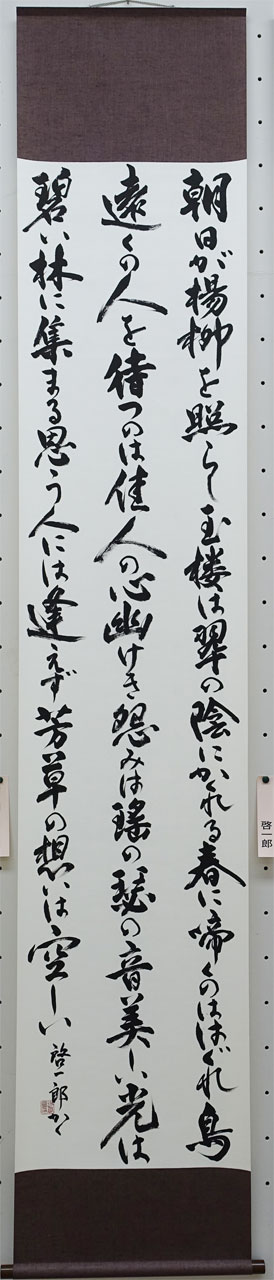 朝日が楊柳を照らし玉楼は翠の陰にかくれる春に啼くのははぐれ鳥
遠くの人を待つのは佳人の心幽けき怨みは瑤の瑟の音美しい光は
碧い林に集まる思う人には逢えず芳草の想いは空しい
啓一郎かく
啓一郎